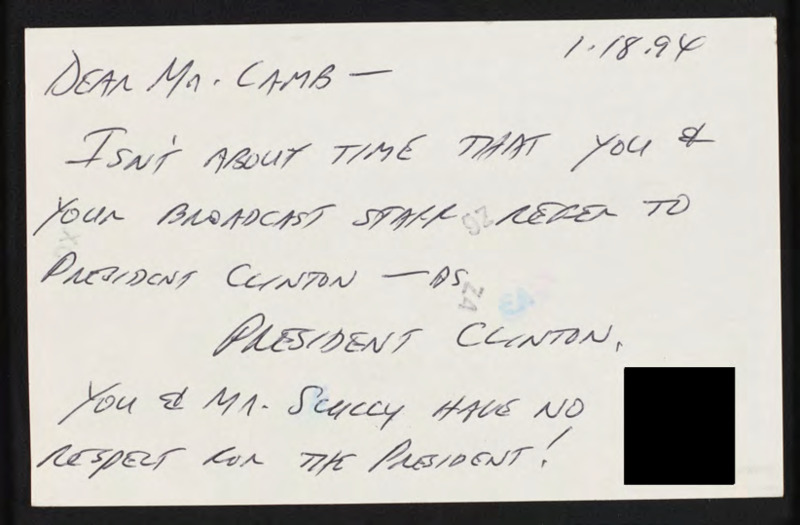 1.18.94
DEAR MR. LAMB —
ISN'T ABOUT TIME THAT YOU &
YOUR BROADCAST STAFF REFER TO
PRESIDENT CLINTON — AS
PRESIDENT CLINTON.
YOU & MR. SCULLY HAVE NO
RESPECT FOR THE PRESIDENT!